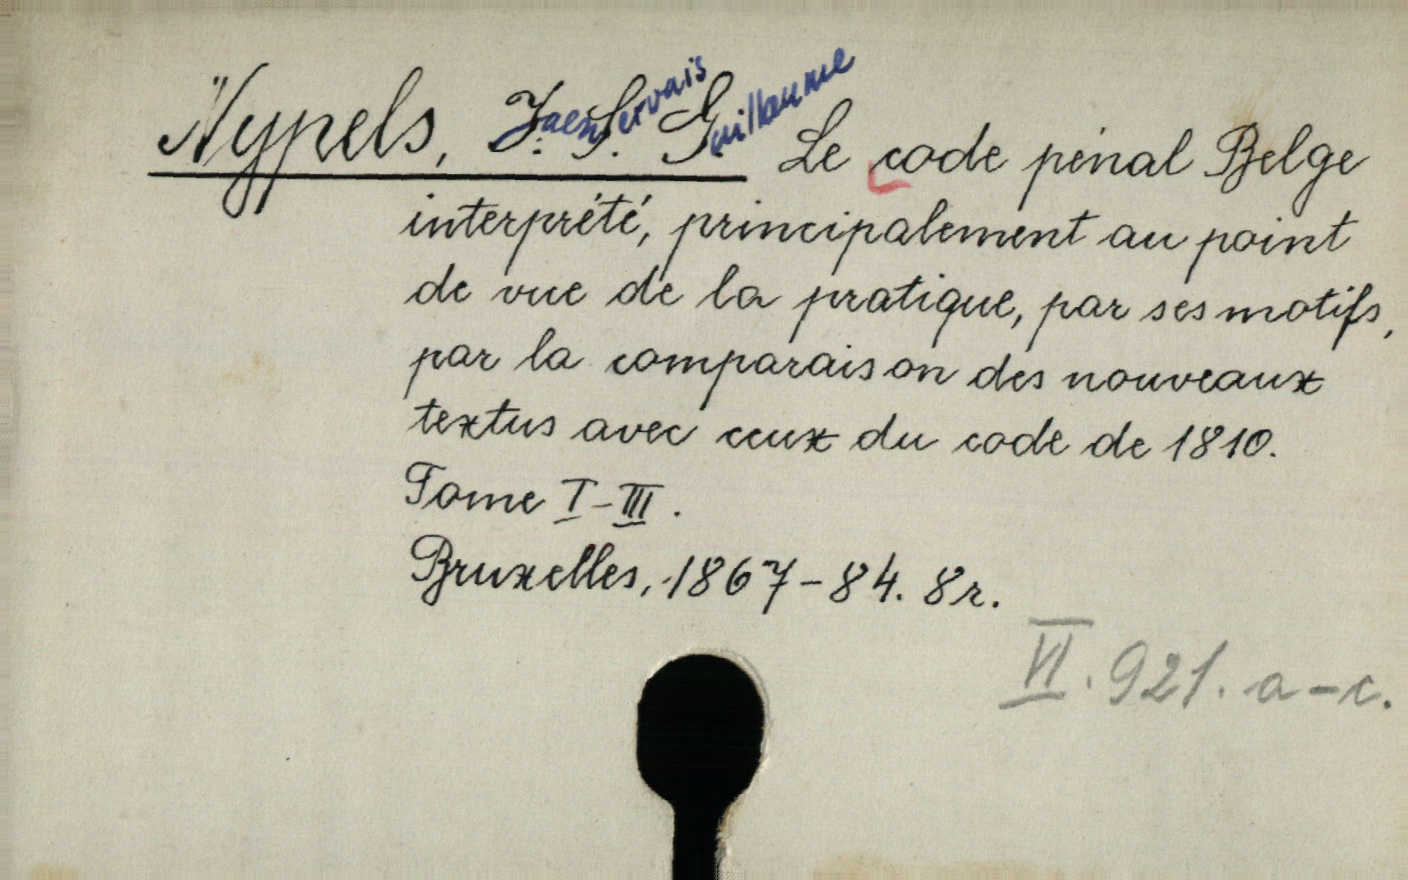 Nypels, J. S. G. Le code pénal Belge
Servais Guillaume
interprété, principalement au point
de vue de la pratique, par ses motifs,
par la comparaison des nouveaux
textus avec ceux du code de 1810.
Tome I-III.
Bruxelles, 1867-84. 8r.
VI. 921. a-c.